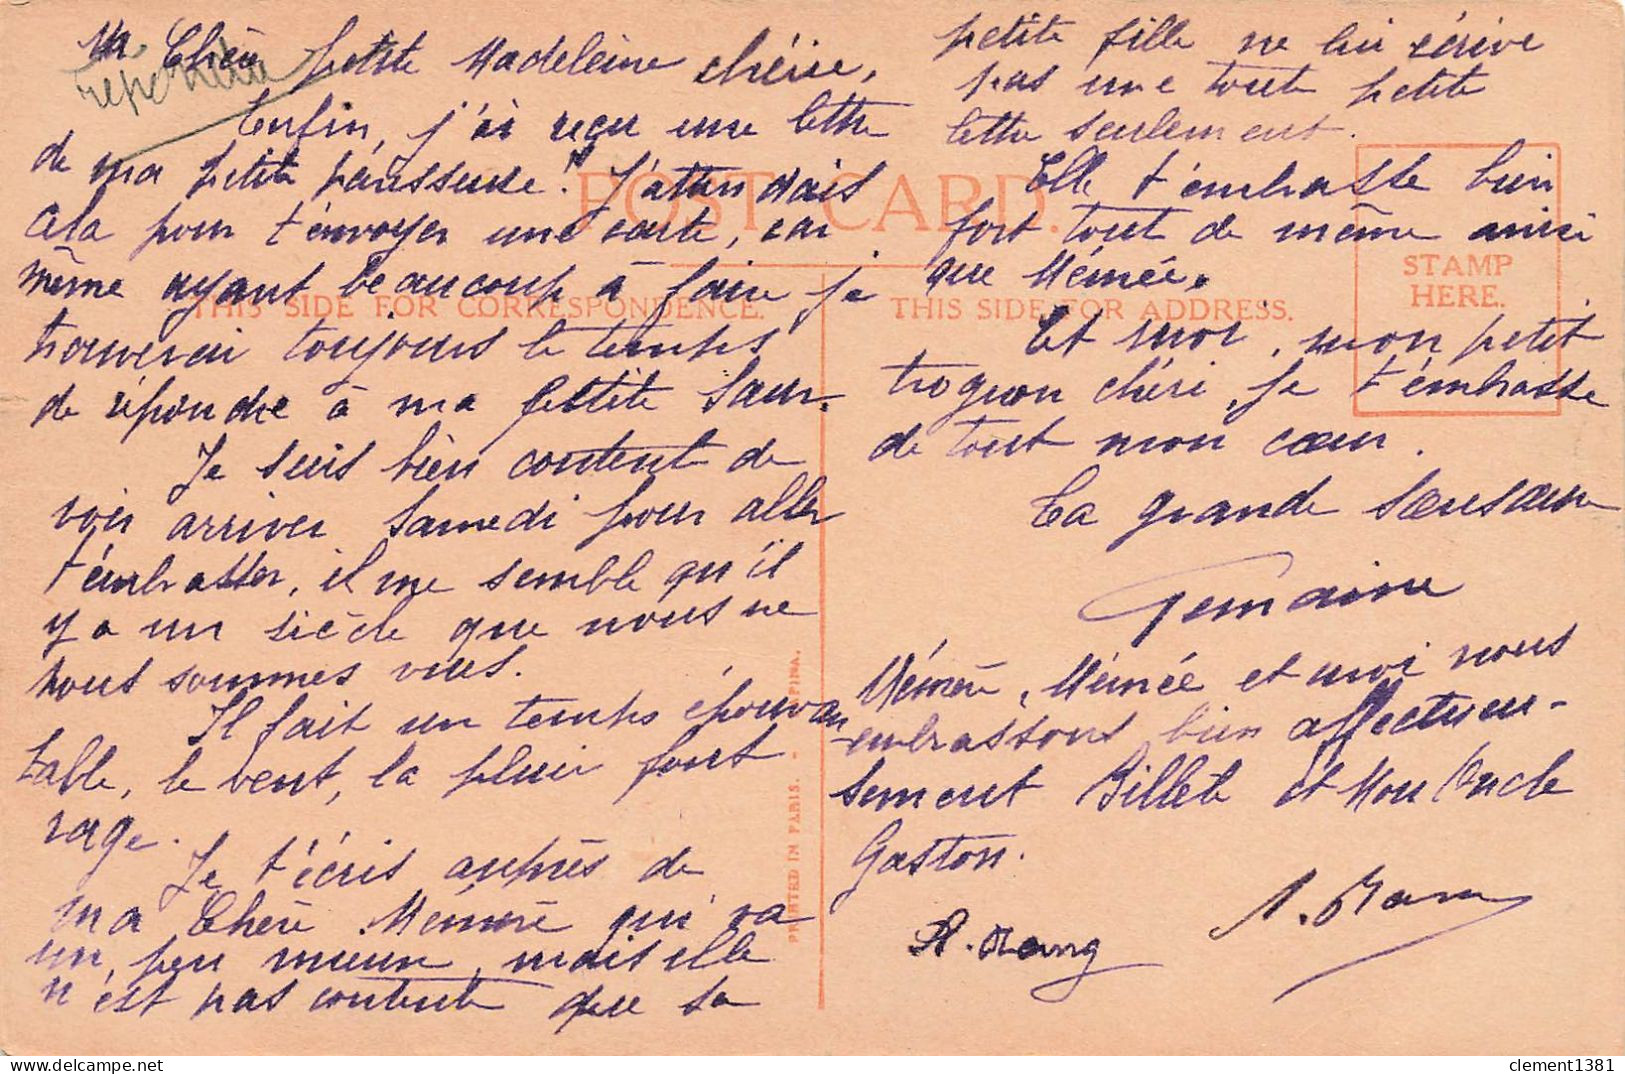 Chère petite Madeleine chérie,
Enfin, j'ai reçu une lettre
de ma petite paresseuse ! J'attendais
cela pour t'envoyer une carte, car
même ayant beaucoup à faire je
trouverai toujours le temps
de répondre à ma petite sœur.
Je suis bien content de
voir arriver Samedi pour aller
t'embrasser, il me semble qu'il
y a un siècle que nous ne
nous sommes vues.
Il fait un temps épouvan
table, le vent, la pluie font
rage.
Je t'écris auprès de
ma Chère Mémère qui va
un peu mieux, mais elle
n'est pas contente que sa
petite fille ne lui écrive
pas une tout petite
lettre seulement.
Elle t'embrasse bien
fort tout de même ainsi
que Mémée.
Et moi, mon petit
trognon chéri, je t'embrasse
de tout mon cœur.
Ta grande sœusœur
Germaine
Mémère, Mémée et moi nous
embrassons bien affectueu-
sement Billete et Mon Oncle
Gaston.
POST CARD.
THIS SIDE FOR CORRESPONDENCE.
THIS SIDE FOR ADDRESS.
STAMP
HERE.
PRINTED IN PARIS. -
clement1381